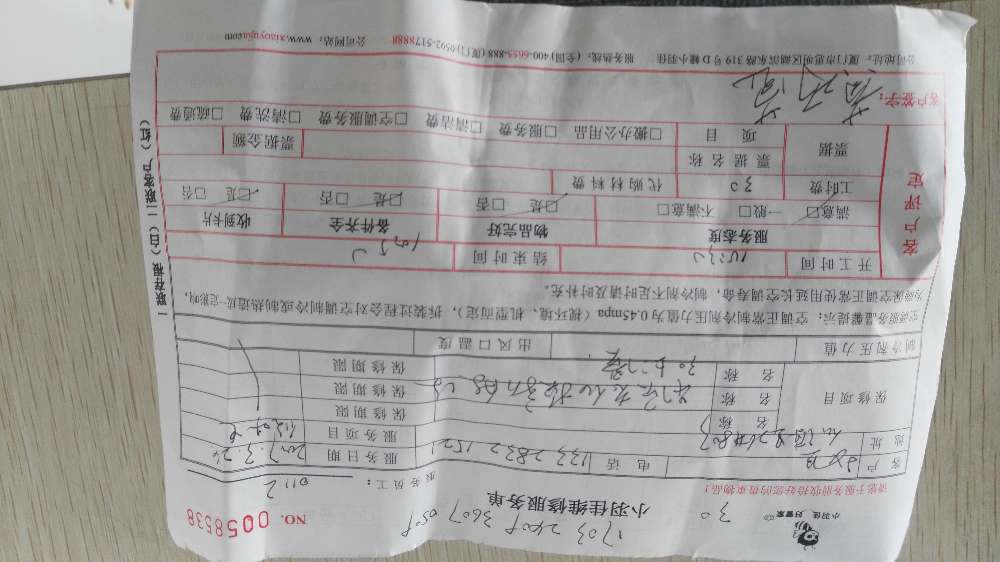 小羽佳 好管家
30
1703240P36070508
NO. 0058538
小羽佳维修服务单
请您于服务前收拾好您的贵重物品！
服务员工：0112
客户 电话 服务日期 2017.3.24
地址 服务项目
保修项目 名称 保修期限
名称 保修期限
名称 保修期限
制冷剂压力值 出风口温度
空调服务温馨提示：空调正常制冷剂压力值为0.45mpa（视环境、机型而定），拆装过程会对空调制冷或制热造成一定影响，
为确保空调正常使用延长空调寿命，制冷剂不足时请及时补充。
开工时间 10:30 结束时间
客户评定
服务态度 物品完好 备件齐全 收到卡片
满意□ 一般□ 不满意□ 是□ 否□ 是□ 否□ 是□ 否□
工时费 30 代购材料费
票据 票据名称 票据金额
项目 □搬办公用品 □服务费 □清洁费 □空调服务费 □清洗费 □疏通费
客户签字：
公司地址：厦门市思明区湖滨东路319号D幢小羽佳 服务热线：（全国）400-6655-888（厦门）0592-5178888 公司网站：www.xiaoyujia.com
一联存根（白）二联客户（红）